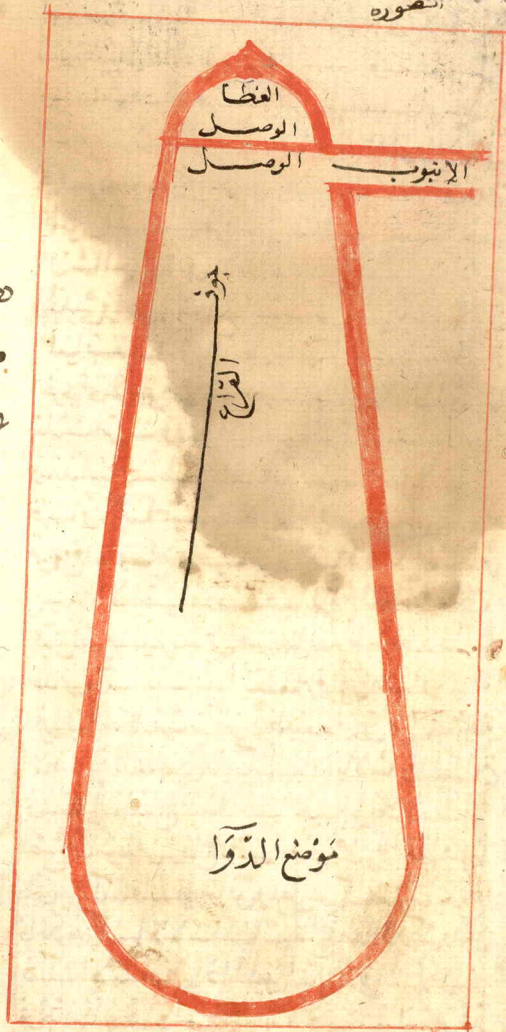 الصوره
الغطا
الوصل
الوصل
الانبوب
جوف
القراع
موضع الدّوَآ